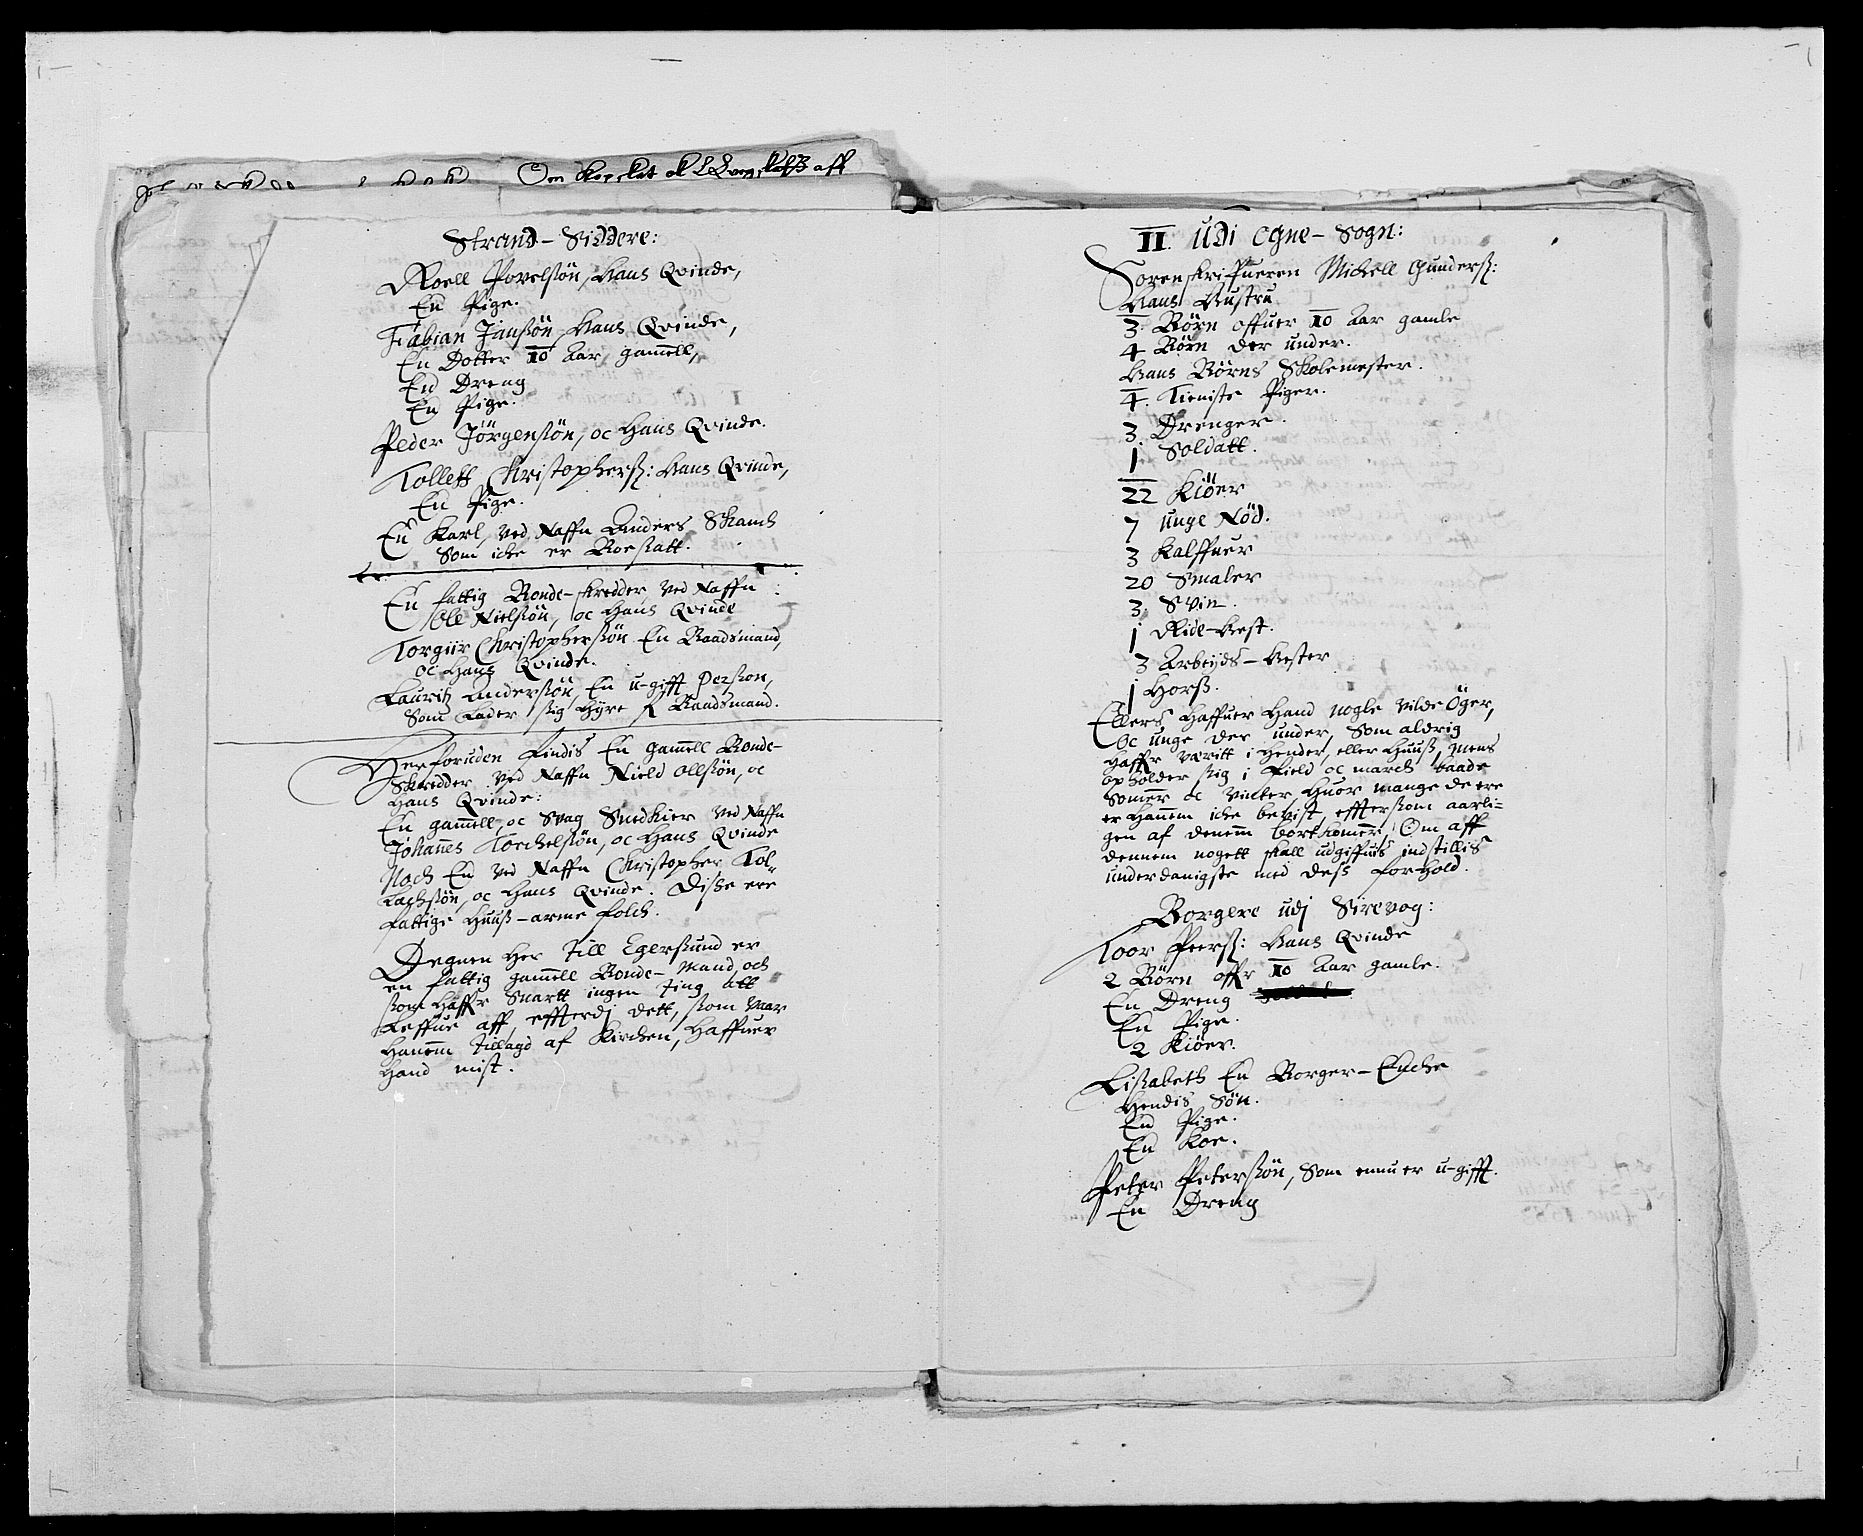 Om Kopskat oc Qvegskatt aff
Strand-Siddere:
Roell Povelsön, Hans Qvinde,
En Pige.
Fabian Janssön, Hans Qvinde,
En Dotter 10 Aar gamell,
En Dreng
En Pige.
Peder Jörgensön, oc Hans Qvinde.
Tolleff Christophers: Hans Qvinde,
En Pige.
En Karl, ved Naffn Anders Skand
Som iche er Boesatt.
En fattig Bonde-skredder, ved Naffn
Ole Nielsön, oc Hans Qvinde
Torgiir Christophersön En Baadsmand,
oc Hans Qvinde.
Lauritz Anderssön, En u-gifft Person,
Som Lader sig Hyre f Baadsmand.
Herforuden findis En gamell Bonde-
Skredder ved Naffn Nield Ollssön, oc
Hans Qvinde:
En gamell, oc Svag Snedkier ved Naffn
Johannes Torchelssön, oc Hans Qvinde
Noch En ved Naffn Christopher Tol-
lachssön, oc Hans Qvinde. Disse ere
fattige Huuß-arme folch.
Degnen Her Till Egersund er
en fattig gamell Bonde-Mand, och
som Haffr Snartt ingen ting att
Leffue aff, efftterdj dett, som vaar
Hanem Tillagd af Kirchen, Haffuer
Hand mist.
II. Udi Ogne-Sogn:
Sorenskrifueren Michell Gunderß:
Hans Hustru
3. Börn offuer 10 Aar gamle
4 Börn der under.
Hans Börns Skolemester.
4. Tieniste Piger.
3 Drenger.
1 Soldatt.
22 Kiöer
7 unge Nöd.
3 Kalffuer
20 Smaler
3. Svin.
1 Ride-Hest.
3 Arbeyds-Hester
1 Horß.
Ellers Haffuer Hand nogle vilde Öger,
Oc unge der under, Som aldrig
Haffr væritt i Hender, eller Huuß, Mens
opholder sig i Field oc march baade
Somer oc Vinter Huor mange de ere
er Hanem iche bevist, effttersom aarli-
gen af denem bortkomer, Om aff
dennem nogett skall udgiffuis indstillis
underdanigste med dess forhold.
Borgere udj Sirevog:
Toor Peerß: Hans Qvinde
2 Börn offr 10 Aar gamle.
En Dreng
En Pige.
2 Kiöer.
Lisabeth En Borger-Enche
Hendis Sön.
En Pige.
En Koe.
Peter Peterssön, Som ennu er u-gifft.
En Dreng